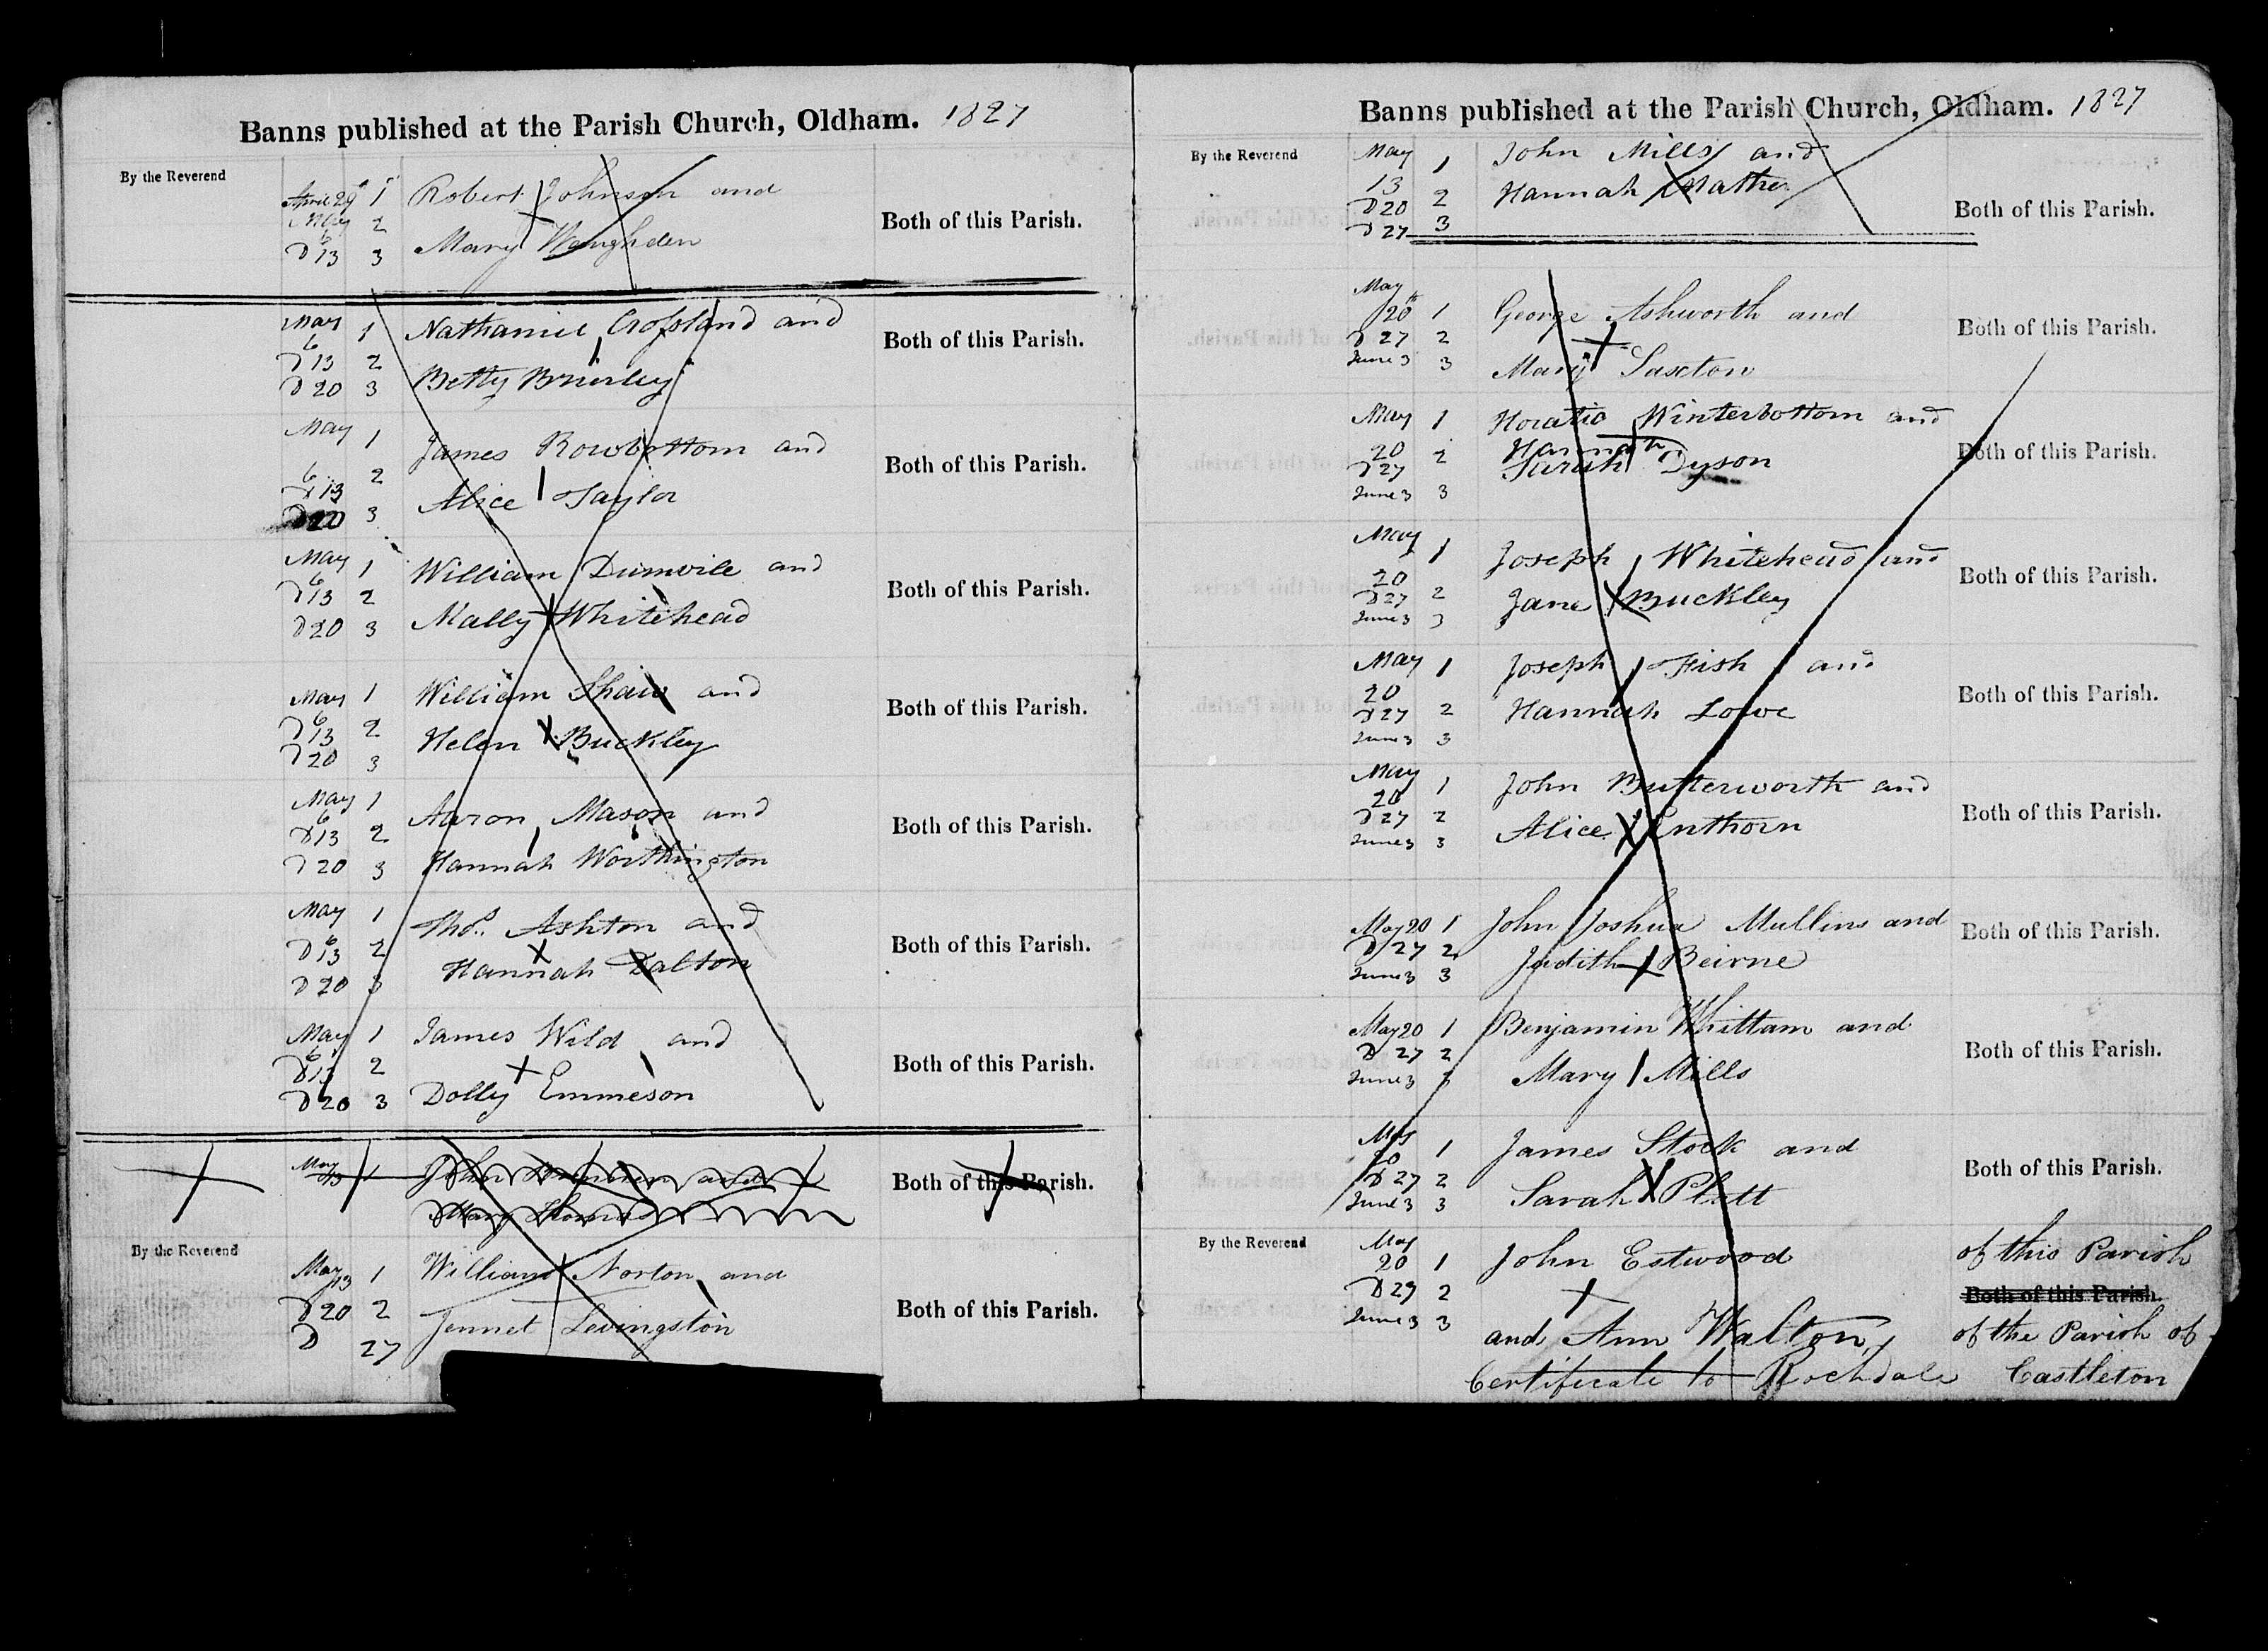 Banns published at the Parish Church, Oldham. 1827
By the Reverend
April 29 1 Robert Johnson and
May 6 2
D 13 3 Mary
Both of this Parish.
May 6 1 Nathaniel Crofsland and
D 13 2
D 20 3 Betty Brierley
Both of this Parish.
May 6 1 James Rowbottom and
D 13 2
D 20 3 Alice Taylor
Both of this Parish.
May 6 1 William Dumvile and
D 13 2
D 20 3 Mally Whitehead
Both of this Parish.
May 6 1 William Shaw and
D 13 2
D 20 3 Helen Buckley
Both of this Parish.
May 6 1 Aaron Mason and
D 13 2
D 20 3 Hannah Worthington
Both of this Parish.
May 6 1 Thos. Ashton and
D 13 2
D 20 3 Hannah Dalton
Both of this Parish.
May 6 1 James Wild and
D 13 2
D 20 3 Dolly Emmeson
Both of this Parish.
May 13 1 John and
Mary Thomas
Both of this Parish.
By the Reverend
May 13 1 William Norton and
D 20 2
D 27 Jennet Levingston
Both of this Parish.
Banns published at the Parish Church, Oldham. 1827
By the Reverend
May 13 1 John Mills and
D 20 2 Hannah Mather
D 27 3
Both of this Parish.
May 20th 1 George Ashworth and
D 27 2
June 3 3 Mary Saxton
Both of this Parish.
May 20 1 Horatio Winterbottom and
Hannah
D 27 2 Sarah Dyson
June 3 3
Both of this Parish.
May 20 1 Joseph Whitehead and
D 27 2 Jane Buckley
June 3 3
Both of this Parish.
May 20 1 Joseph Fish and
D 27 2 Hannah Lowe
June 3 3
Both of this Parish.
May 20 1 John Butterworth and
D 27 2 Alice Enthorn
June 3 3
Both of this Parish.
May 20 1 John Joshua Mullins and
D 27 2 Judith Beirne
June 3 3
Both of this Parish.
May 20 1 Benjamin Whittam and
D 27 2
June 3 3 Mary Mills
Both of this Parish.
May 20 1 James Stock and
D 27 2
June 3 3 Sarah Platt
Both of this Parish.
By the Reverend
May 20 1 John Estwood of this Parish
D 27 2 Both of this Parish.
June 3 3 and Ann Walton, of the Parish of
Certificate to Rochdale Castleton